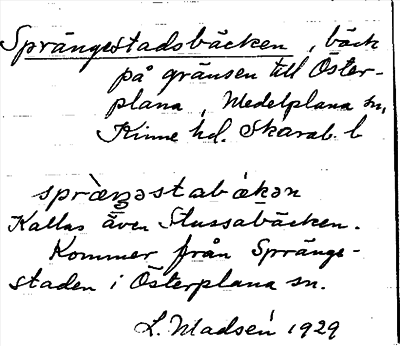 Sprängestadsbäcken, bäck
på gränsen till Öster-
plana, Medelplana sn,
Kinne hd. Skarab. l
spræ̀ŋəstabǽkən
Kallas även Stussabäcken.
Kommer från Spränge-
staden i Österplana sn.
L. Madsén 1929